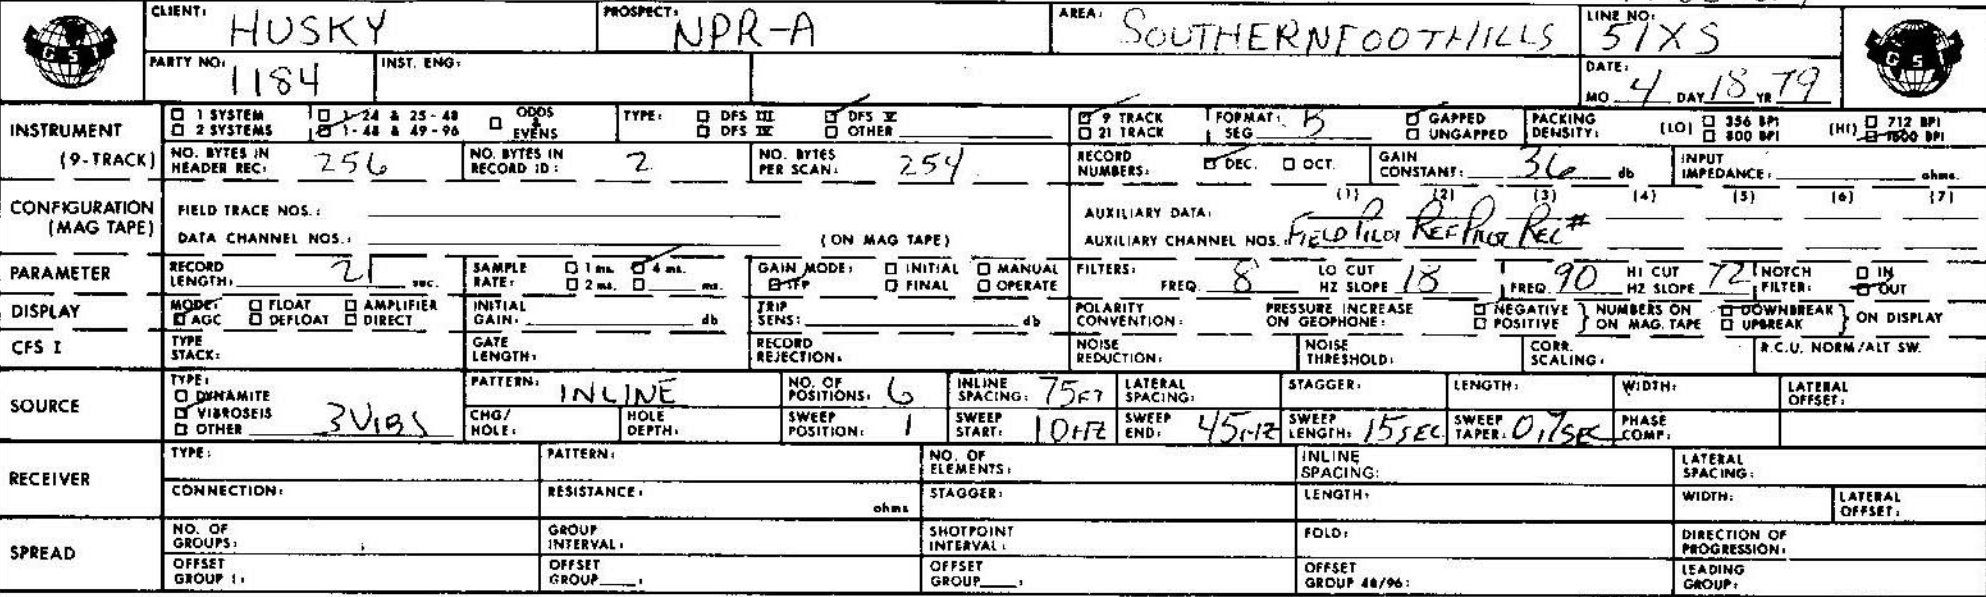 CLIENT: HUSKY PROSPECT: NPR-A AREA: SOUTHERN FOOTHILLS LINE NO: 51XS
GSI GSI
PARTY NO: 1184 INST. ENG: DATE: MO 4 DAY 18 YR 79
INSTRUMENT 1 SYSTEM 1-24 & 25-48 ODDS & EVENS TYPE: DFS III DFS V 9 TRACK FORMAT: SEG B GAPPED PACKING DENSITY: (LO) 356 BPI (HI) 712 BPI
2 SYSTEMS 1-48 & 49-96 DFS IV OTHER 21 TRACK UNGAPPED 800 BPI 1600 BPI
(9-TRACK) NO. BYTES IN HEADER REC: 256 NO. BYTES IN RECORD ID: 2 NO. BYTES PER SCAN: 254 RECORD NUMBERS: DEC. OCT. GAIN CONSTANT: 36 db INPUT IMPEDANCE: ohms.
CONFIGURATION FIELD TRACE NOS.: AUXILIARY DATA: (1) (2) (3) (4) (5) (6) (7)
(MAG TAPE) DATA CHANNEL NOS.: (ON MAG TAPE) AUXILIARY CHANNEL NOS. FIELD PILOT REF PILOT REC #
PARAMETER RECORD LENGTH: 21 sec. SAMPLE RATE: 1 ms. 4 ms. 2 ms. ms. GAIN MODE: INITIAL MANUAL IFP FINAL OPERATE FILTERS: FREQ. 8 LO CUT HZ SLOPE 18 FREQ. 90 HI CUT HZ SLOPE 72 NOTCH FILTER: IN OUT
DISPLAY MODE: FLOAT AMPLIFIER AGC DEFLOAT DIRECT INITIAL GAIN: db TRIP SENS: db POLARITY CONVENTION: PRESSURE INCREASE ON GEOPHONE: NEGATIVE POSITIVE } NUMBERS ON ON MAG. TAPE DOWNBREAK UPBREAK } ON DISPLAY
CFS I TYPE STACK: GATE LENGTH: RECORD REJECTION: NOISE REDUCTION: NOISE THRESHOLD: CORR. SCALING: R.C.U. NORM/ALT SW.
SOURCE TYPE: DYNAMITE VIBROSEIS OTHER 3 VIBS PATTERN: INLINE NO. OF POSITIONS: 6 INLINE SPACING: 75FT LATERAL SPACING: STAGGER: LENGTH: WIDTH: LATERAL OFFSET:
CHG/HOLE: HOLE DEPTH: SWEEP POSITION: 1 SWEEP START: 10HZ SWEEP END: 45HZ SWEEP LENGTH: 15SEC SWEEP TAPER: 0,7SEC PHASE COMP:
RECEIVER TYPE: PATTERN: NO. OF ELEMENTS: INLINE SPACING: LATERAL SPACING:
CONNECTION: RESISTANCE: ohms STAGGER: LENGTH: WIDTH: LATERAL OFFSET:
SPREAD NO. OF GROUPS: GROUP INTERVAL: SHOTPOINT INTERVAL: FOLD: DIRECTION OF PROGRESSION:
OFFSET GROUP 1: OFFSET GROUP : OFFSET GROUP : OFFSET GROUP 48/96: LEADING GROUP: